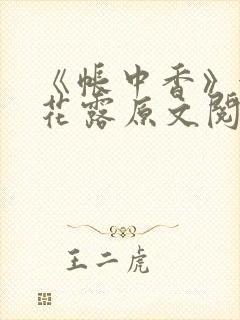 《帐中香》
花露原文阅
王二虎